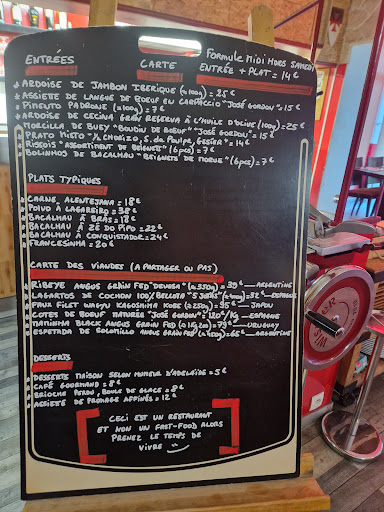 Entrées
Carte
Formule Midi Hors Samedi
Entrée + Plat = 14€
* Ardoise de Jambon Iberique (100g) = 25€
* Assiete de Langue de Boeuf en Carpaccio "José Gordon" = 15€
* Pimento Padrone (100g) = 7€
* Ardoise de Cecina Gran Reserva à l'huile d'olive (100g) = 25€
* Morcilla de Buey "Boudin de Boeuf" "José Gordon" = 15€
* Prato Misto "½ Chorizo, S. de Poulpe, Gesier" = 14€
* Rissois "Assortiment de Beignets" (6pcs) = 7€
* Bolinhos de Bacalhau "Beignets de Morue" (6pcs) = 7€
Plats Typiques
* Carne Alentejana = 18€
* Polvo à Lagareiro = 38€
* Bacalhau à Bras = 18€
* Bacalhau à Zé do Pipo = 22€
* Bacalhau à Conquistador = 24€
* Francesinha = 20€
Carte des Viandes (A partager ou pas)
* Ribeye Angus Grain Fed "Devesa" (≈350g) = 39€ — Argentine
* Lagartos de Cochon 100% Bellota "5 Jotas" = 32€ — Espagne
* Faux Filet Wagyu Kagoshima Kobe (≈250g) = 95€ — Japon
* Cotes de Boeuf Maturée "José Gordon" = 120€/Kg — Espagne
* Maminha Black Angus Grain Fed = 79€ — Uruguay
* Espetada de Solomillo Angus Grain Fed = 65€ — Argentine
Desserts
* Desserts Maison selon Humeur d'Adelaïde = 5€
* Café Gourmand = 8€
* Brioche Perdu, Boule de Glace = 8€
* Assiete de Fromage Affinés = 12€
Ceci est un restaurant
et non un fast-food alors
prenez le temps de
vivre